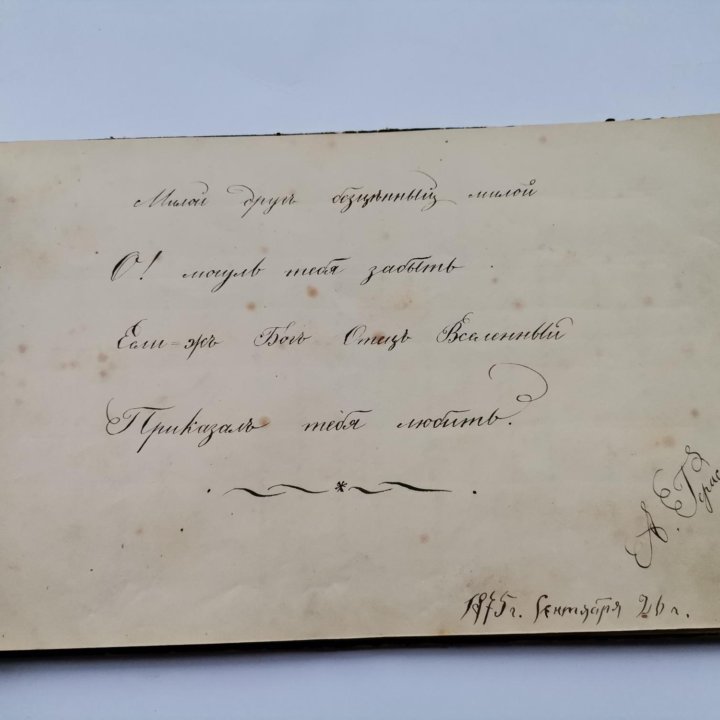 Милой другъ безцѣнный милой
О! могулъ тебя забыть.
Если=жъ Богъ Отецъ Вселенный
Приказалъ тебя любить?
А. Герас
1875 г. Сентября 26 г.